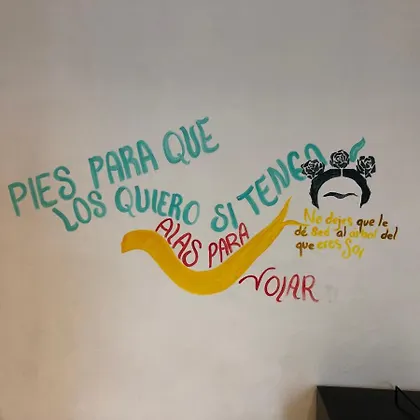 PIES PARA QUE
LOS QUIERO SI TENGO
ALAS PARA
VOLAR
No dejes que le
dé sed al árbol del
que eres Sol